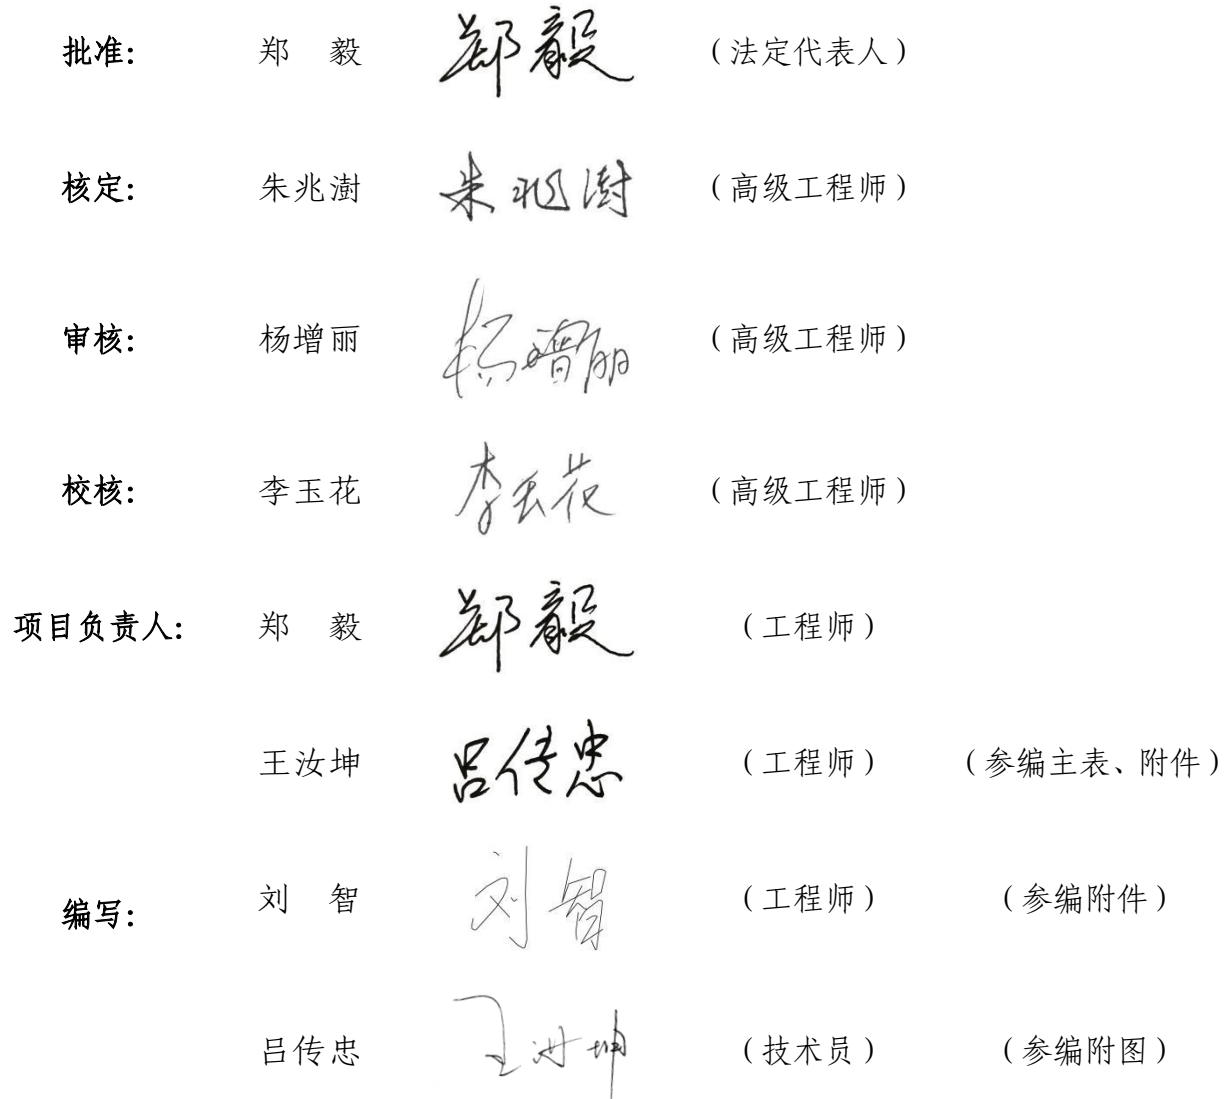 批准: 郑 毅 郑毅 (法定代表人)
核定: 朱兆澍 朱兆澍 (高级工程师)
审核: 杨增丽 杨增丽 (高级工程师)
校核: 李玉花 李玉花 (高级工程师)
项目负责人: 郑 毅 郑毅 (工程师)
王汝坤 吕传忠 (工程师) (参编主表、附件)
编写: 刘 智 刘智 (工程师) (参编附件)
吕传忠 王汝坤 (技术员) (参编附图)